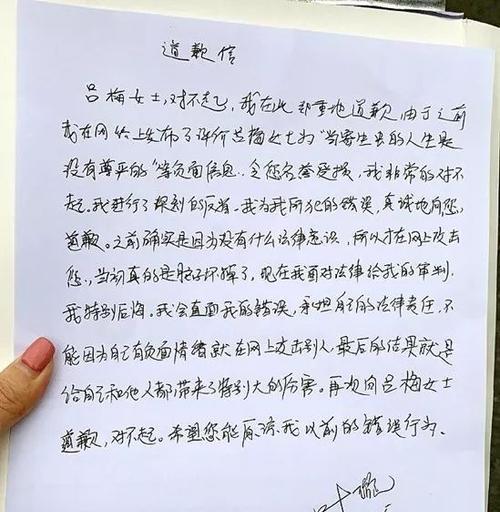 道歉信
吕梅女士,对不起,我在此郑重地道歉,由于之前
我在网络上发布了评价吕梅女士为"当寄生虫的人生是
没有尊严的"等负面信息..令您名誉受损,我非常的对不
起。我进行了深刻的反省。我为我所犯的错误,真诚地向您
道歉。之前确实是因为没有什么法律意识,所以才在网上攻击
您.,当初真的是脑子坏掉了,现在我面对法律给我的审判.
我特别后悔。我会直面我的错误,承担自己的法律责任.不
能因为自己有负面情绪就在网上攻击别人.最后的结果就是
给自己和他人都带来了特别大的伤害。再次向吕梅女士
道歉,对不起。希望您能原谅我以前的错误行为.